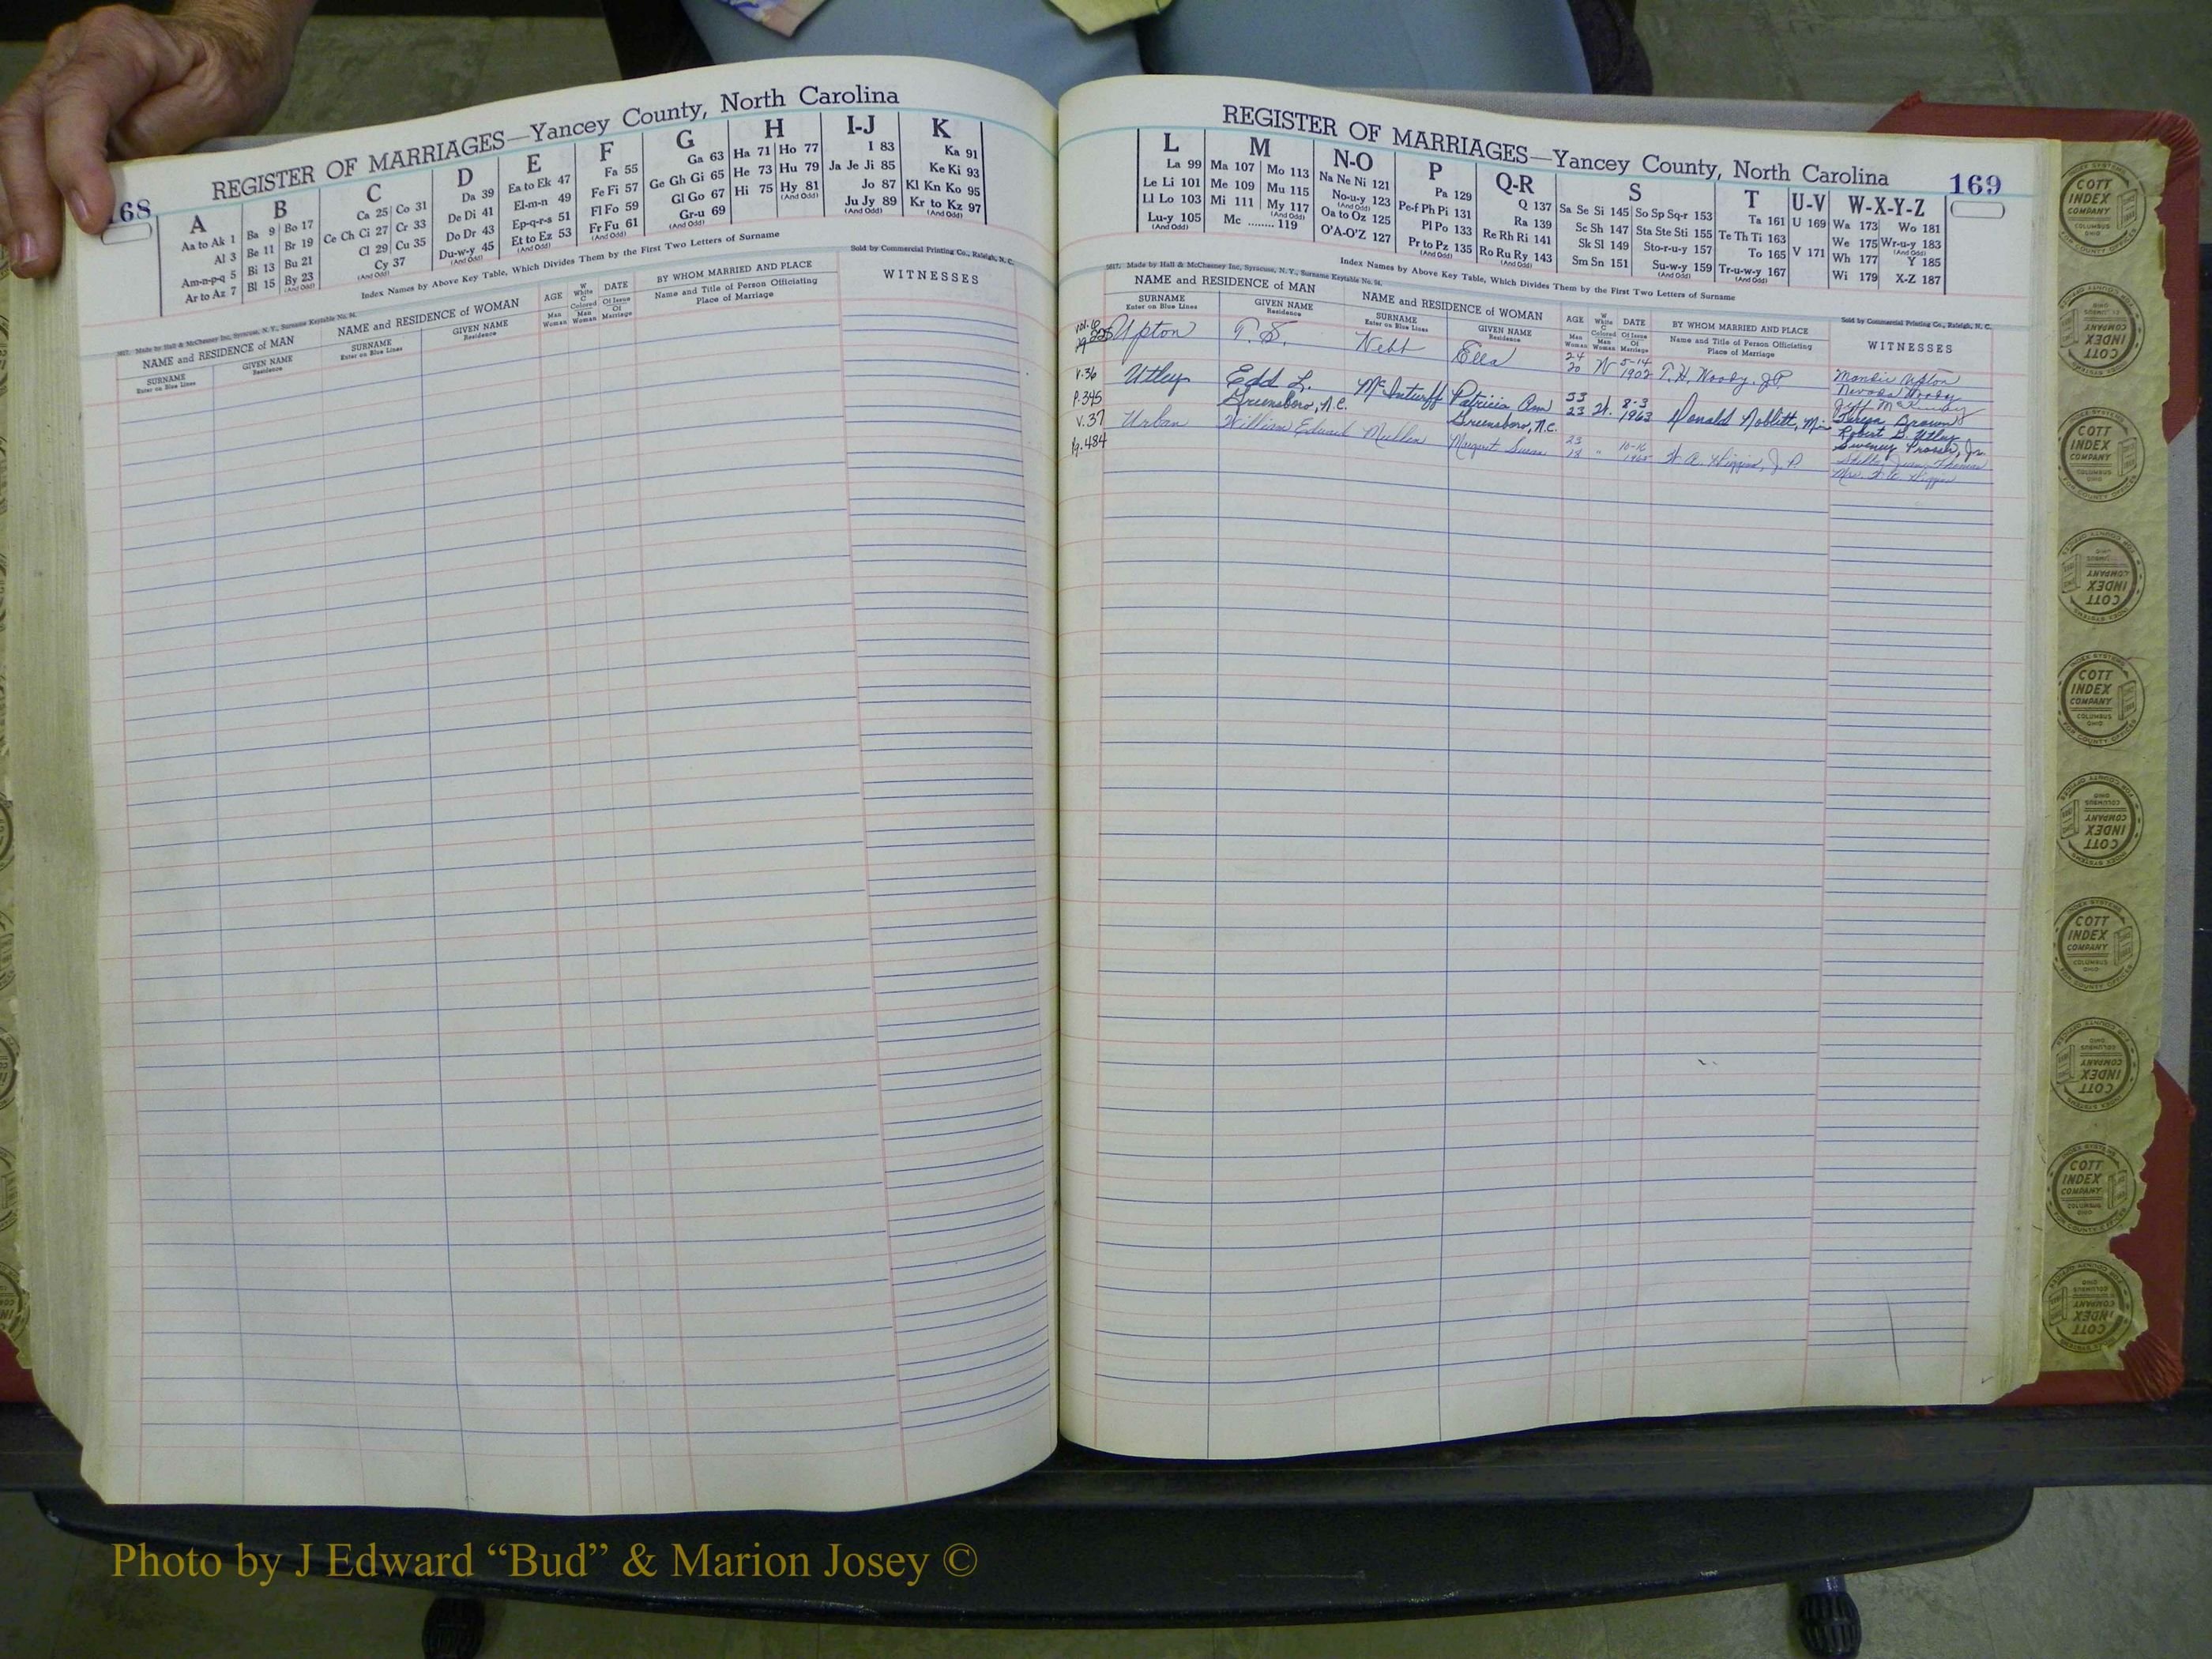 168
REGISTER OF MARRIAGES—Yancey County, North Carolina
A
Aa to Ak 1
Al 3
Am-n-p-q 5
Ar to Az 7
B
Ba 9 Bo 17
Be 11 Br 19
Bi 13 Bu 21
Bl 15 By 23
(And Odd)
C
Ca 25 Co 31
Ce Ch Ci 27 Cr 33
Cl 29 Cu 35
Cy 37
(And Odd)
D
Da 39
De Di 41
Do Dr 43
Du-w-y 45
(And Odd)
E
Ea to Ek 47
El-m-n 49
Ep-q-r-s 51
Et to Ez 53
(And Odd)
F
Fa 55
Fe Fi 57
Fl Fo 59
Fr Fu 61
(And Odd)
G
Ga 63
Ge Gh Gi 65
Gl Go 67
Gr-u 69
(And Odd)
H
Ha 71 Ho 77
He 73 Hu 79
Hi 75 Hy 81
(And Odd)
I-J
I 83
Ja Je Ji 85
Jo 87
Ju Jy 89
(And Odd)
K
Ka 91
Ke Ki 93
Kl Kn Ko 95
Kr to Kz 97
(And Odd)
Index Names by Above Key Table, Which Divides Them by the First Two Letters of Surname
5617. Made by Hall & McChesney Inc, Syracuse, N. Y., Surname Keytable No. 94.
Sold by Commercial Printing Co., Raleigh, N. C.
NAME and RESIDENCE of MAN
SURNAME
Enter on Blue Lines
GIVEN NAME
Residence
NAME and RESIDENCE of WOMAN
SURNAME
Enter on Blue Lines
GIVEN NAME
Residence
AGE
Man
Woman
W
White
C
Colored
Man
Woman
DATE
Of Issue
Of
Marriage
BY WHOM MARRIED AND PLACE
Name and Title of Person Officiating
Place of Marriage
WITNESSES
REGISTER OF MARRIAGES—Yancey County, North Carolina
169
L
La 99
Le Li 101
Ll Lo 103
Lu-y 105
(And Odd)
M
Ma 107 Mo 113
Me 109 Mu 115
Mi 111 My 117
(And Odd)
Mc ........ 119
N-O
Na Ne Ni 121
No-u-y 123
(And Odd)
Oa to Oz 125
O'A-O'Z 127
P
Pa 129
Pe-f Ph Pi 131
Pl Po 133
Pr to Pz 135
(And Odd)
Q-R
Q 137
Ra 139
Re Rh Ri 141
Ro Ru Ry 143
(And Odd)
S
Sa Se Si 145 So Sp Sq-r 153
Sc Sh 147 Sta Ste Sti 155
Sk Sl 149 Sto-r-u-y 157
Sm Sn 151 Su-w-y 159
(And Odd)
T
Ta 161
Te Th Ti 163
To 165
Tr-u-w-y 167
(And Odd)
U-V
U 169
V 171
W-X-Y-Z
Wa 173 Wo 181
We 175 Wr-u-y 183
(And Odd)
Wh 177 Y 185
Wi 179 X-Z 187
Index Names by Above Key Table, Which Divides Them by the First Two Letters of Surname
5617. Made by Hall & McChesney Inc, Syracuse, N. Y., Surname Keytable No. 94.
Sold by Commercial Printing Co., Raleigh, N. C.
NAME and RESIDENCE of MAN
SURNAME
Enter on Blue Lines
GIVEN NAME
Residence
NAME and RESIDENCE of WOMAN
SURNAME
Enter on Blue Lines
GIVEN NAME
Residence
AGE
Man
Woman
W
White
C
Colored
Man
Woman
DATE
Of Issue
Of
Marriage
BY WHOM MARRIED AND PLACE
Name and Title of Person Officiating
Place of Marriage
WITNESSES
Vol. 6
Upton T. S. Webb Ella 24 20 W 5-14 1902 T. H. Woody, J.P.
Upton
Woody
Jeff McKinney
V. 36
P. 345
Utley Edd L. McInturff Patricia Ann 33 23 W. 8-3 1963 Donald Noblitt, Min
Greensboro, N.C. Greensboro, N.C.
Teresa Brown
Robert G. Utley
V. 37
Pg. 484
Urban William Edward Mullen Margaret Susan 23 18 " 10-16 W. A. Higgins, J. P.
Mrs. W. A. Higgins
COTT
INDEX
COMPANY
COLUMBUS
OHIO
INDEX SYSTEMS
FOR COUNTY OFFICES
Photo by J Edward “Bud” & Marion Josey ©